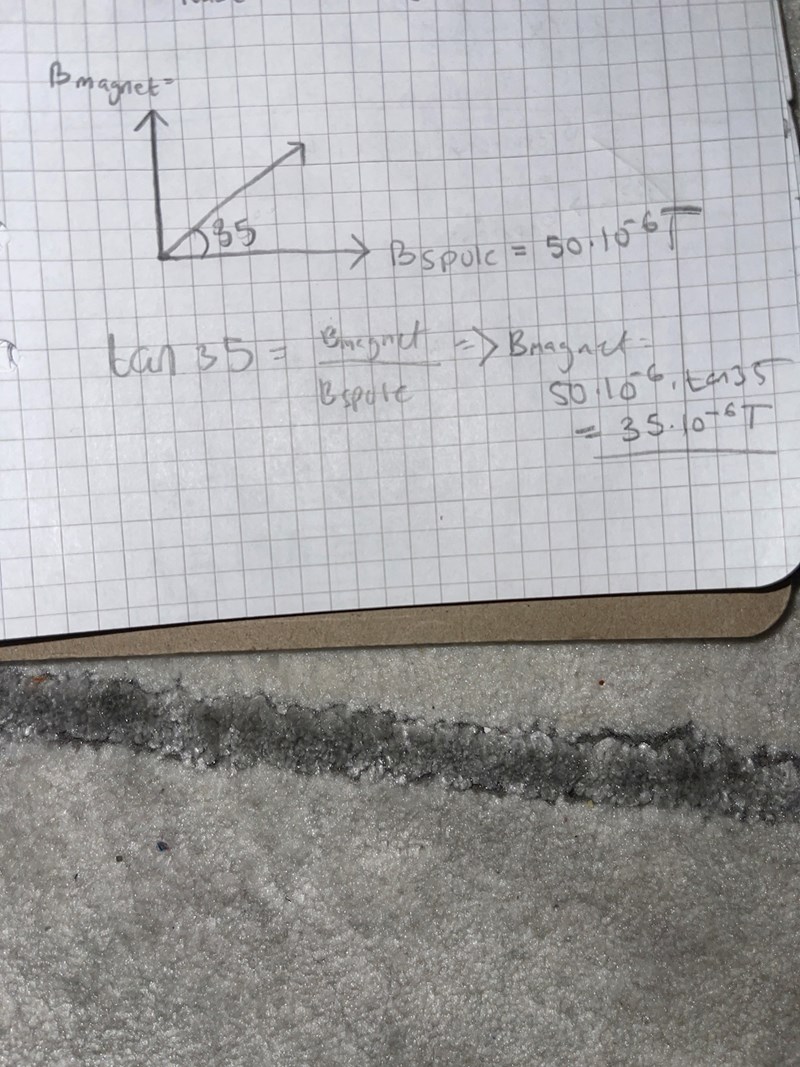 Bmagnet=
35
Bspole = 50·10⁻⁶T
tan 35 = Bmagnet / Bspole => Bmagnet =
50·10⁻⁶·tan35
= 35·10⁻⁶T